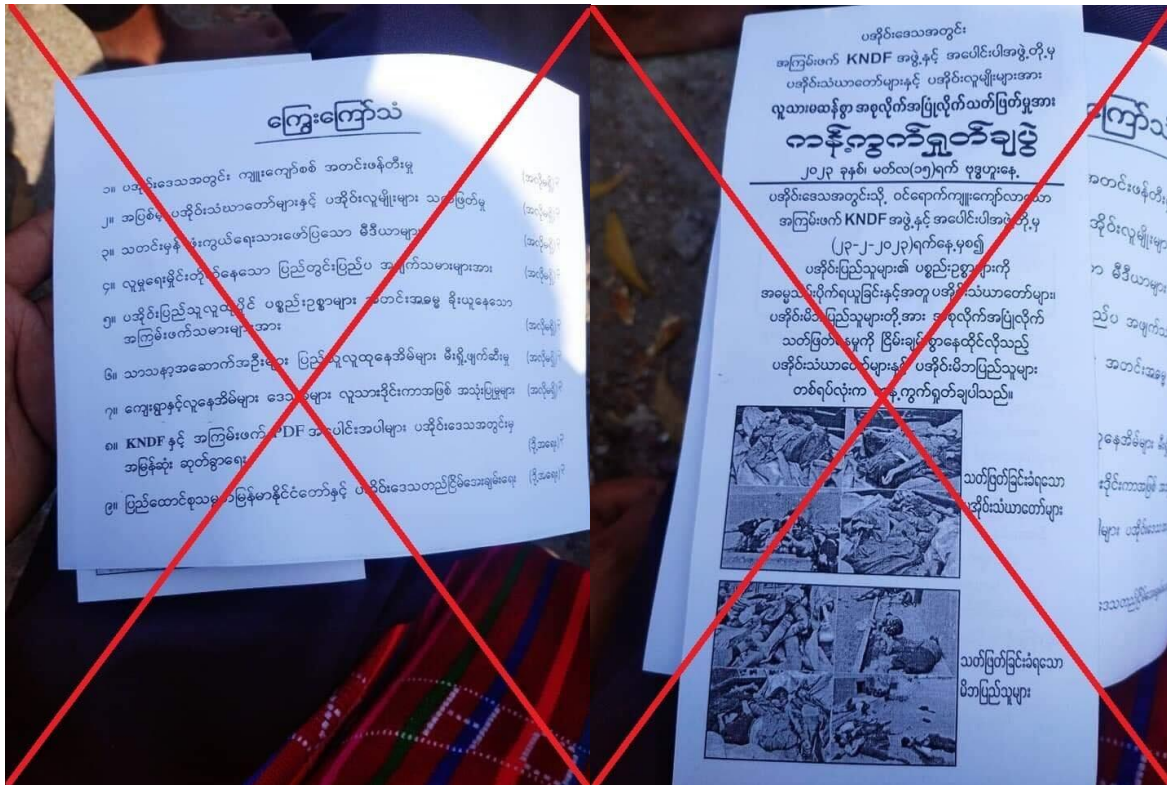 ကြွေးကြော်သံ
၁။ ပအိုဝ်းဒေသအတွင်း ကျူးကျော်စစ် အတင်းဖန်တီးမှု (အလိုမရှိ)?
၂။ အပြစ်မဲ့ ပအိုဝ်းသံဃာတော်များနှင့် ပအိုဝ်းလူမျိုးများ သတ်ဖြတ်မှု (အလိုမရှိ)?
၃။ သတင်းမှန် ဖုံးကွယ်ရေးသားဖော်ပြသော မီဒီယာများ (အလိုမရှိ)?
၄။ လူမှုရေးမှိုင်းတိုက်နေသော ပြည်တွင်းပြည်ပ အဖျက်သမားများအား (အလိုမရှိ)?
၅။ ပအိုဝ်းပြည်သူလူထုပိုင် ပစ္စည်းဥစ္စာများ အတင်းအဓမ္မ ခိုးယူနေသော
အကြမ်းဖက်သမားများအား (အလိုမရှိ)?
၆။ သာသနာ့အဆောက်အဦးများ ပြည်သူလူထုနေအိမ်များ မီးရှို့ဖျက်ဆီးမှု (အလိုမရှိ)?
၇။ ကျေးရွာနှင့်လူနေအိမ်များ ဒေသခံများ လူသားဒိုင်းကာအဖြစ် အသုံးပြုမှုများ (အလိုမရှိ)?
၈။ KNDF နှင့် အကြမ်းဖက် PDF အပေါင်းအပါများ ပအိုဝ်းဒေသအတွင်းမှ
အမြန်ဆုံး ဆုတ်ခွာရေး (ဒို့အရေး)?
၉။ ပြည်ထောင်စုသမ္မတမြန်မာနိုင်ငံတော်နှင့် ပအိုဝ်းဒေသတည်ငြိမ်အေးချမ်းရေး (ဒို့အရေး)?
ပအိုဝ်းဒေသအတွင်း
အကြမ်းဖက် KNDF အဖွဲ့နှင့် အပေါင်းပါအဖွဲ့တို့မှ
ပအိုဝ်းသံဃာတော်များနှင့် ပအိုဝ်းလူမျိုးများအား
လူသားမဆန်စွာ အစုလိုက်အပြုံလိုက်သတ်ဖြတ်မှုအား
ကန့်ကွက်ရှုတ်ချပွဲ
၂၀၂၃ ခုနှစ်၊ မတ်လ(၁၅)ရက် ဗုဒ္ဓဟူးနေ့
ပအိုဝ်းဒေသအတွင်းသို့ ဝင်ရောက်ကျူးကျော်လာသော
အကြမ်းဖက် KNDF အဖွဲ့နှင့် အပေါင်းပါအဖွဲ့တို့မှ
(၂၃-၂-၂၀၂၃)ရက်နေ့မှစ၍
ပအိုဝ်းပြည်သူများ၏ ပစ္စည်းဥစ္စာများကို
အဓမ္မသိမ်းပိုက်ရယူခြင်းနှင့်အတူ ပအိုဝ်းသံဃာတော်များ၊
ပအိုဝ်းမိဘပြည်သူများတို့အား အစုလိုက်အပြုံလိုက်
သတ်ဖြတ်နေမှုကို ငြိမ်းချမ်းစွာနေထိုင်လိုသည့်
ပအိုဝ်းသံဃာတော်များနှင့် ပအိုဝ်းမိဘပြည်သူများ
တစ်ရပ်လုံးက ကန့်ကွက်ရှုတ်ချပါသည်။
သတ်ဖြတ်ခြင်းခံရသော
ပအိုဝ်းသံဃာတော်များ
သတ်ဖြတ်ခြင်းခံရသော
မိဘပြည်သူများ